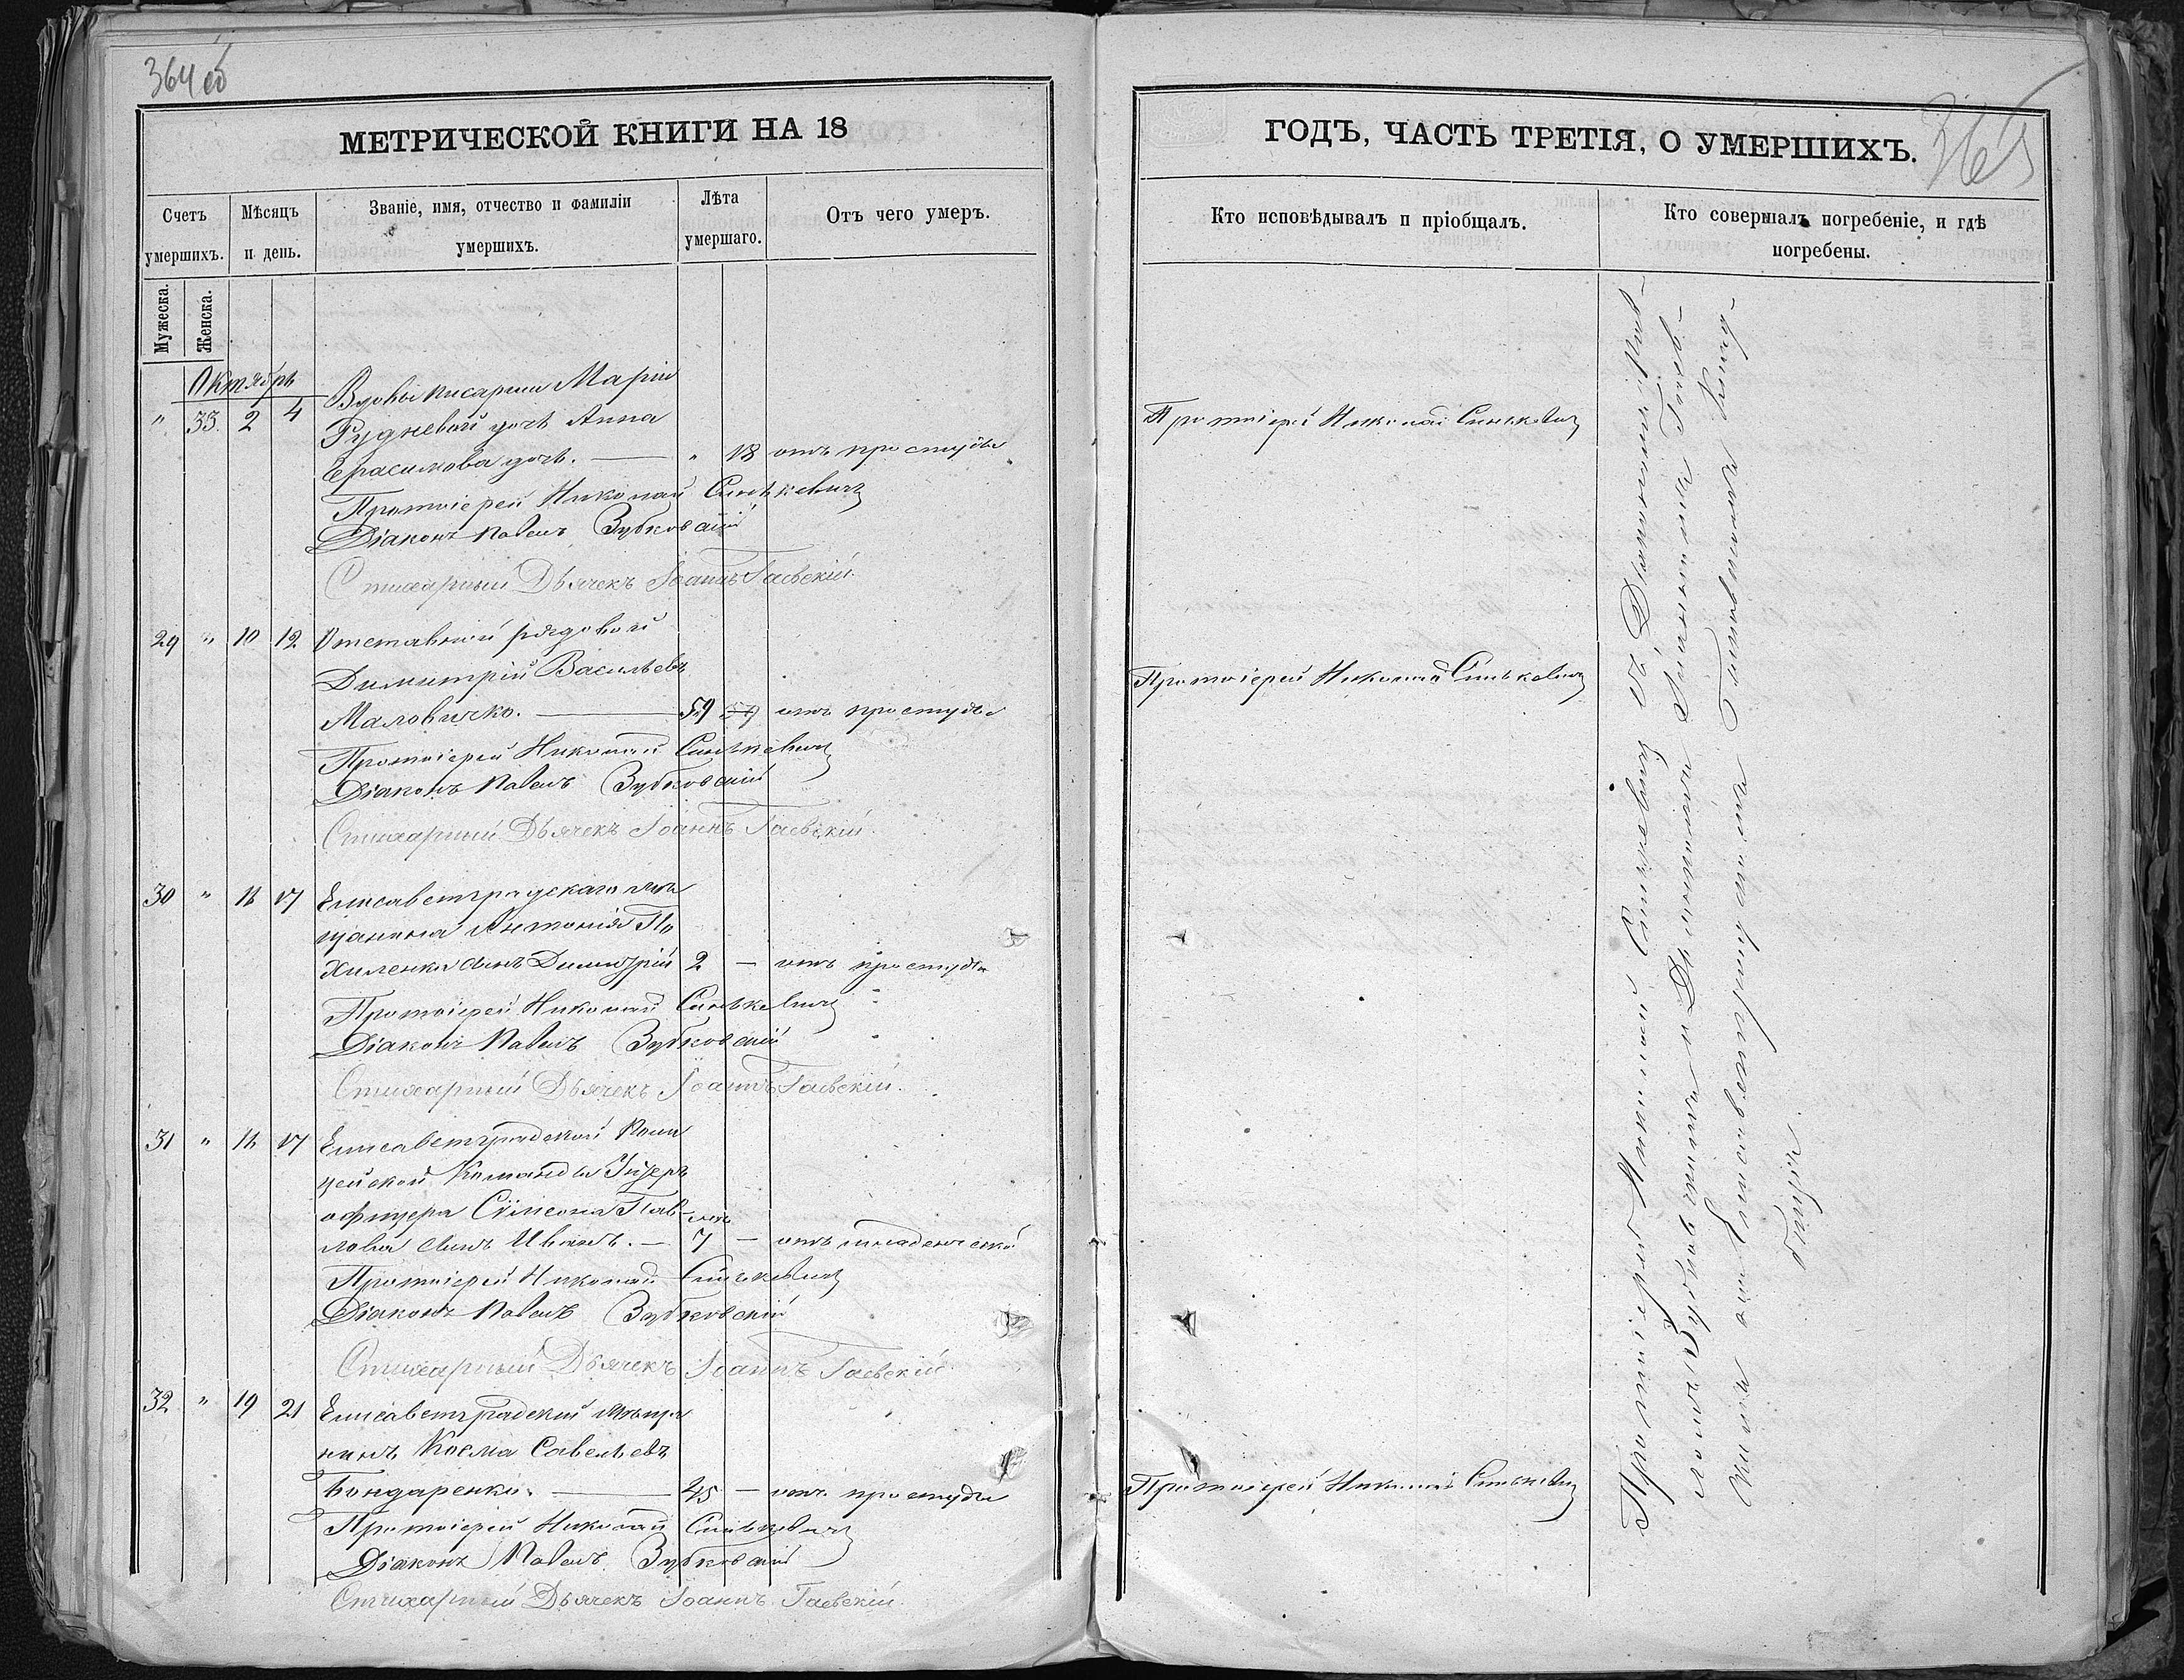 364 об
МЕТРИЧЕСКОЙ КНИГИ НА 18
Счетъ умершихъ.
Мѣсяцъ и день.
Званіе, имя, отчество и фамиліи умершихъ.
Лѣта умершаго.
Отъ чего умеръ.
Мужеска.
Женска.
Октябрь
" 33. 2 4 Вдовы писарши Маріи
Рудневой дочь Анна
Герасимова дочь. — " 18 отъ простуды
Протоіерей Николай Синькевичъ
Діаконъ Павелъ Зубковскій
Стихарный Дьячекъ Іоаннъ Гаевскій.
29 " 10 12 Отставной рядовой
Димитрій Васильевъ
Маловичко. — 59 59 отъ простуды
Протоіерей Николай Синькевичъ
Діаконъ Павелъ Зубковскій
Стихарный Дьячекъ Іоаннъ Гаевскій.
30 " 16 17 Елисаветградскаго мѣ
щанина Антонія По
хиленки сынъ Димитрій 2 — отъ простуды
Протоіерей Николай Синькевичъ
Діаконъ Павелъ Зубковскій
Стихарный Дьячекъ Іоаннъ Гаевскій.
31 " 16 17 Елисаветградской Поли
цейской Команды Унтеръ
офицера Сѵмеона Пав-
лова сынъ Иванъ. — 7 — отъ младенческой
Протоіерей Николай Синькевичъ
Діаконъ Павелъ Зубковскій
Стихарный Дьячекъ Іоаннъ Гаевскій.
32 " 19 21 Елисаветградскій мѣща
нинъ Косма Савельевъ
Бондаренко. — 45 — отъ простуды
Протоіерей Николай Синькевичъ
Діаконъ Павелъ Зубковскій
Стихарный Дьячекъ Іоаннъ Гаевскій.
365
ГОДЪ, ЧАСТЬ ТРЕТІЯ, О УМЕРШИХЪ.
Кто исповѣдывалъ и пріобщалъ.
Кто совершалъ погребеніе, и гдѣ погребены.
Протоіерей Николай Синькевичъ
Протоіерей Николай Синькевичъ
Протоіерей Николай Синькевичъ
Протоіерей Николай Синькевичъ съ Діакономъ Пав-
ломъ Зубковскимъ и Дьячкомъ Іоанномъ Гаев-
скимъ на Елисаветградскомъ Клад-
бищѣ.